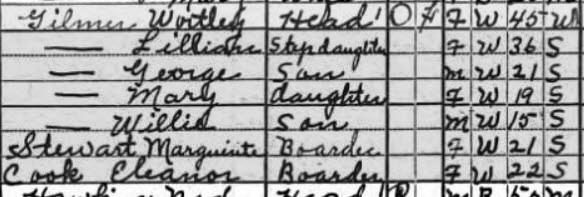 Gilmer Wortley Head O F W 45 Wd
— Lillian Stepdaughter F W 36 S
— George Son M W 21 S
— Mary daughter F W 19 S
— Willie Son M W 15 S
Stewart Marguirite Boarder F W 21 S
Cook Eleanor Boarder F W 22 S